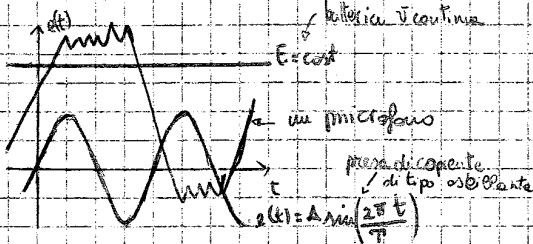 e(t)
batteria V continua
E = cost
un microfono
presa di corrente
di tipo oscillante
t
e(t) = A sin(2π t / T)